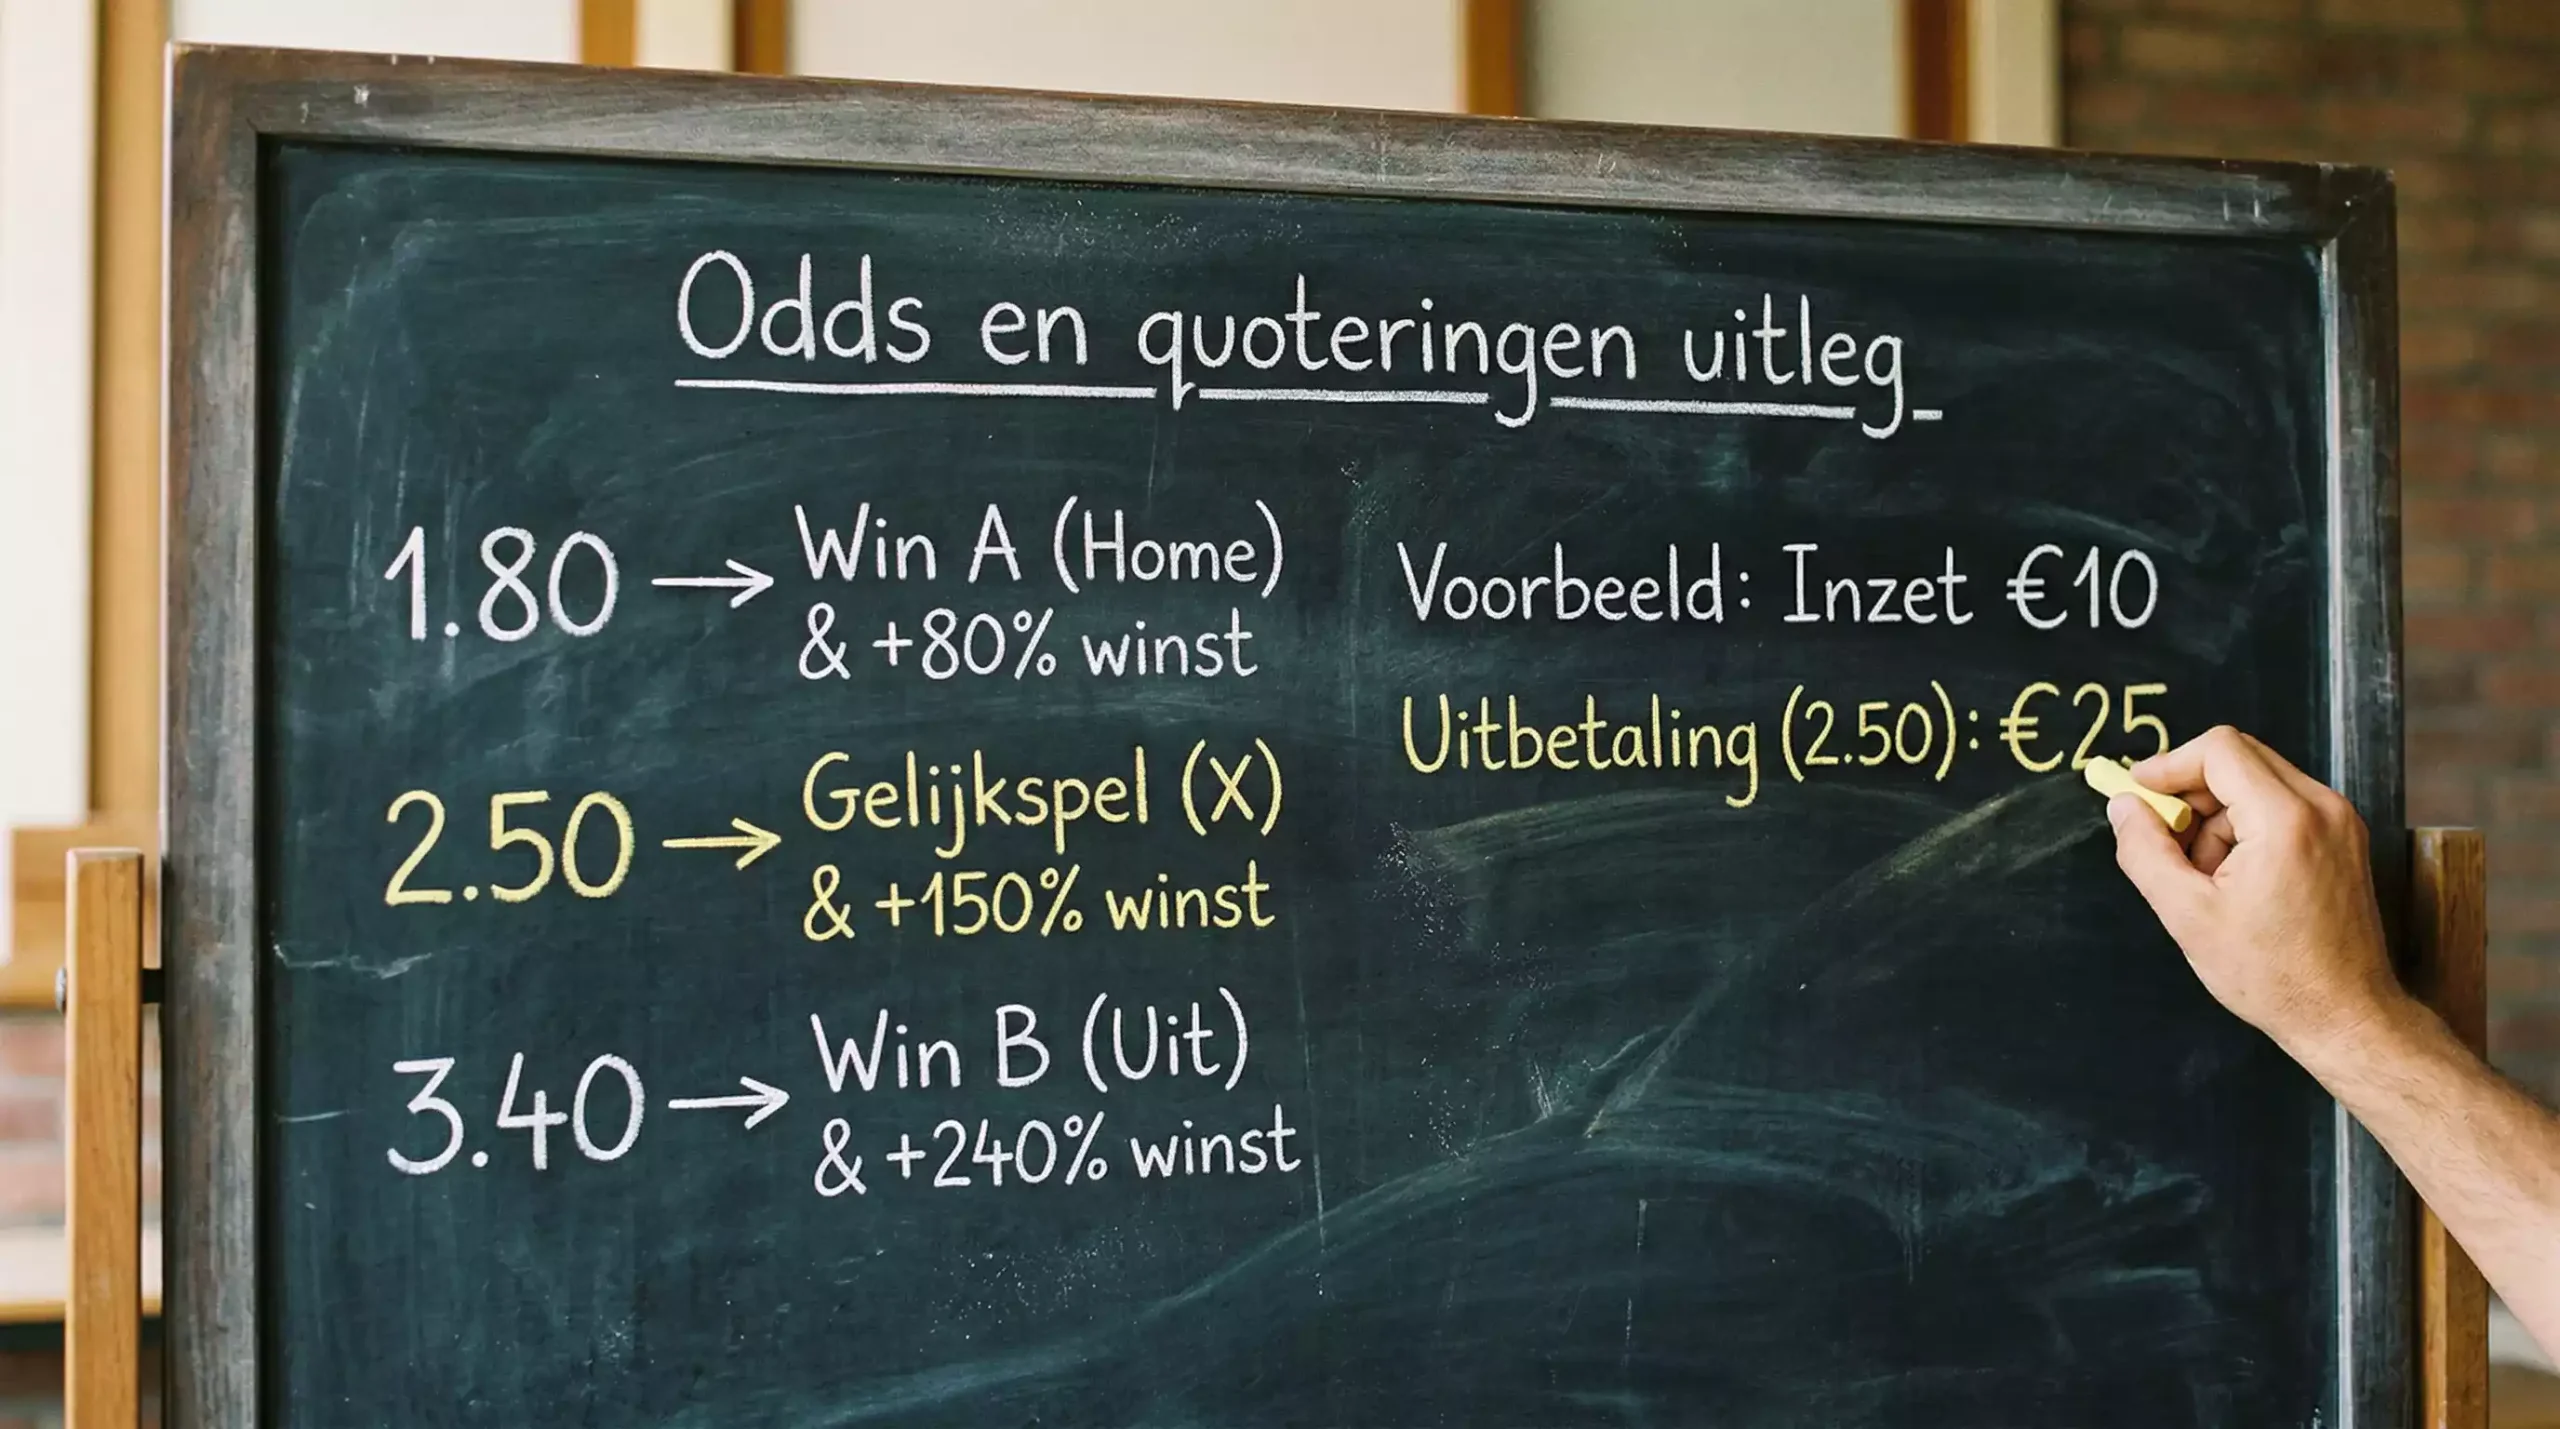 Odds en quoteringen uitleg
1.80 → Win A (Home)
& +80% winst
2.50 → Gelijkspel (X)
& +150% winst
3.40 → Win B (Uit)
& +240% winst
Voorbeeld: Inzet €10
Uitbetaling (2.50): €25